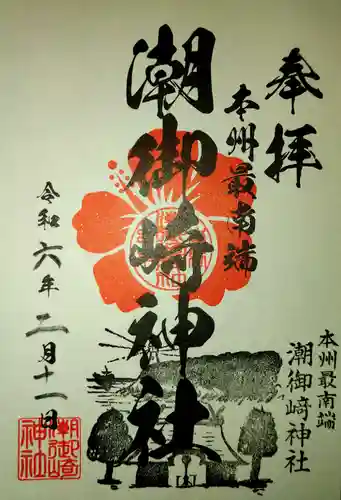 奉拝
本州最南端
潮御崎神社
令和六年二月十一日
本州最南端
潮御﨑神社
潮御崎
神社